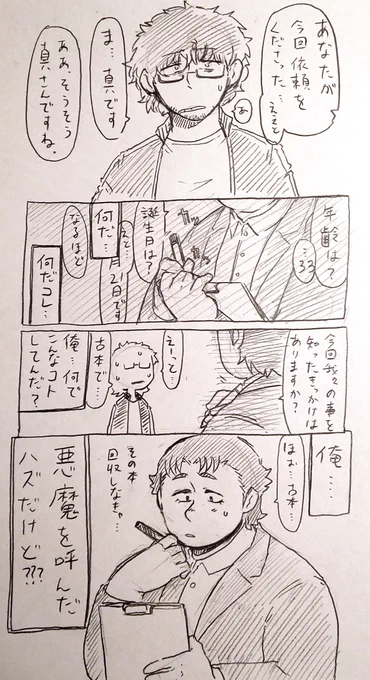 あなたが
今回依頼を
くださった…ええと
あ
ま…、真です
ああ、そうそう
真さんですね。
年齢は?
…33
カリ
カリ
誕生日は?
えと…
月21日です
なるほど
何だ…
何だコレ…
今回我々の事を
知ったきっかけは
ありますか?
えーっと…
古本で…
俺…何で
こんなコト
してんだ?
俺…
ほぉ…古本…
その本
回収しなきゃ…
悪魔を呼んだ
ハズだけど???